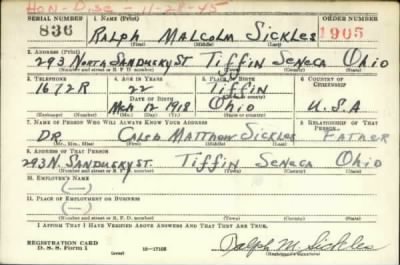 HON-Disc - 11-28-45
SERIAL NUMBER 1. NAME (Print) ORDER NUMBER
836 RALPH MALCOLM SICKLES 1905
(First) (Middle) (Last)
2. ADDRESS (Print)
293 NORTH SANDUSKY ST TIFFIN SENECA OHIO
(Number and street or R. F. D. number) (Town) (County) (State)
3. TELEPHONE 4. AGE IN YEARS 5. PLACE OF BIRTH 6. COUNTRY OF CITIZENSHIP
1672R 22 TIFFIN
DATE OF BIRTH
12 1918 OHIO U.S.A
(Exchange) (Number) (Mo.) (Day) (Yr.) (State or country)
7. NAME OF PERSON WHO WILL ALWAYS KNOW YOUR ADDRESS 8. RELATIONSHIP OF THAT PERSON
DR CALEB MATTHEW SICKLES FATHER
(Mr., Mrs., Miss) (First) (Middle) (Last)
9. ADDRESS OF THAT PERSON
293 N. SANDUSKY ST. TIFFIN SENECA OHIO
(Number and street or R. F. D. number) (Town) (County) (State)
10. EMPLOYER'S NAME
(—)
11. PLACE OF EMPLOYMENT OR BUSINESS
(—)
(Number and street or R. F. D. number) (Town) (County) (State)
I AFFIRM THAT I HAVE VERIFIED ABOVE ANSWERS AND THAT THEY ARE TRUE.
REGISTRATION CARD
D. S. S. Form 1 (over) 16—17105 Ralph M. Sickles
(Registrant's signature)